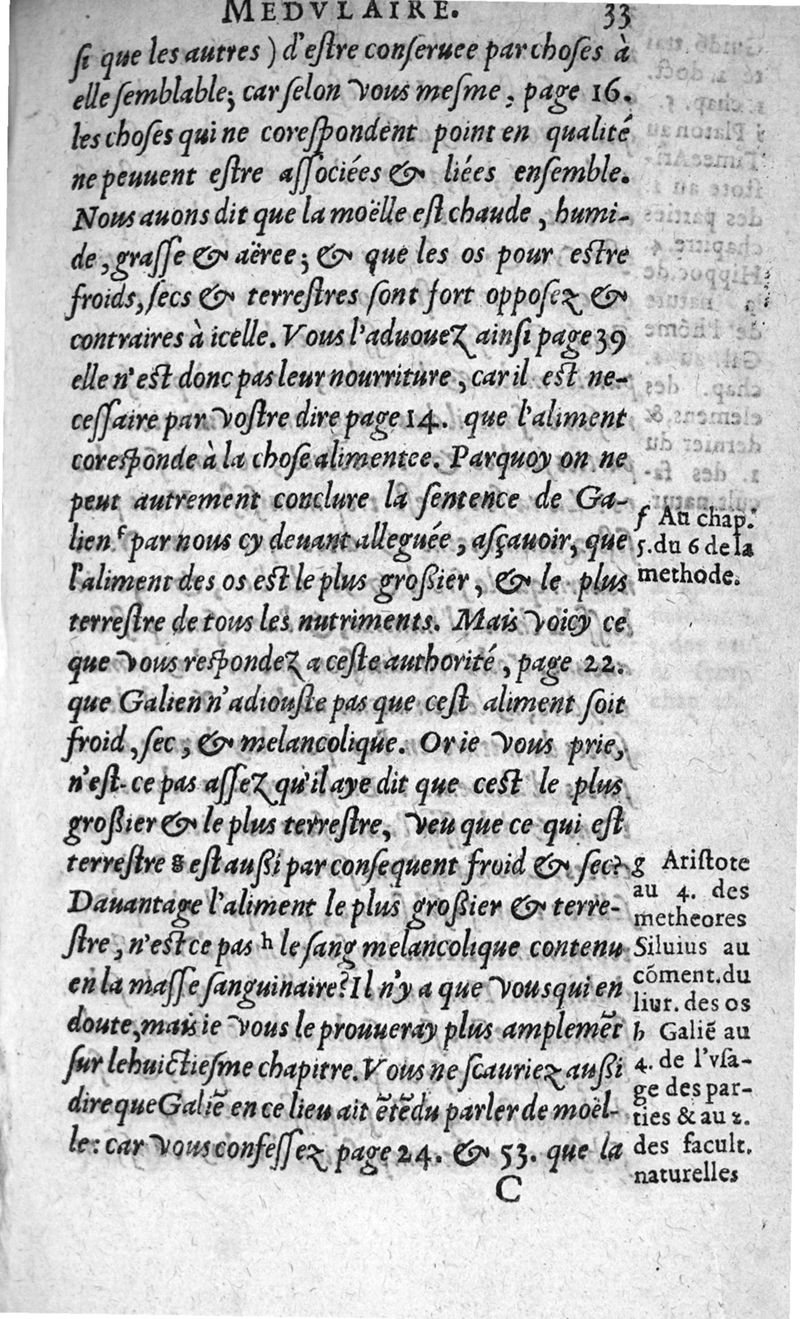 MEDVLAIRE. 33
ſi que les autres) d'eſtre conſeruee par choſes à
elle ſemblable; car ſelon vous meſme, page 16.
les choſes qui ne coreſpondent point en qualité
ne peuuent eſtre aſſociées & liées enſemble.
Nous auons dit que la moëlle eſt chaude, humi-
de, graſſe & aëree; & que les os pour eſtre
froids, ſecs & terreſtres ſont fort oppoſez &
contraires à icelle. Vous l'aduouez ainſi page 39
elle n'eſt donc pas leur nourriture, car il eſt ne-
ceſſaire par voſtre dire page 14. que l'aliment
coreſponde à la choſe alimentee. Parquoy on ne
peut autrement conclure la ſentence de Ga-
lien f par nous cy deuant alleguée, aſçauoir, que
l'aliment des os eſt le plus groſſier, & le plus
terreſtre de tous les nutriments. Mais voicy ce
que vous reſpondez a ceſte authorité, page 22.
que Galien n'adiouſte pas que ceſt aliment ſoit
froid, ſec, & melancolique. Or ie vous prie,
n'eſt-ce pas aſſez qu'il aye dit que ceſt le plus
groſſier & le plus terreſtre, veu que ce qui eſt
terreſtre g eſt auſſi par conſequent froid & ſec?
Dauantage l'aliment le plus groſſier & terre-
ſtre, n'eſt ce pas h le ſang melancolique contenu
en la maſſe ſanguinaire? Il n'y a que vous qui en
doute, mais ie vous le prouueray plus amplemēt
ſur le huictieſme chapitre. Vous ne ſcauriez auſſi
dire que Galiē en ce lieu ait ētēdu parler de moël-
le: car vous confeſſez page 24. & 53. que la
C
f Au chap.
5. du 6 de la
methode.
g Ariſtote
au 4. des
metheores
Siluius au
cōment. du
liur. des os
h Galiē au
4. de l'vſa-
ge des par-
ties & au 2.
des facult.
naturelles